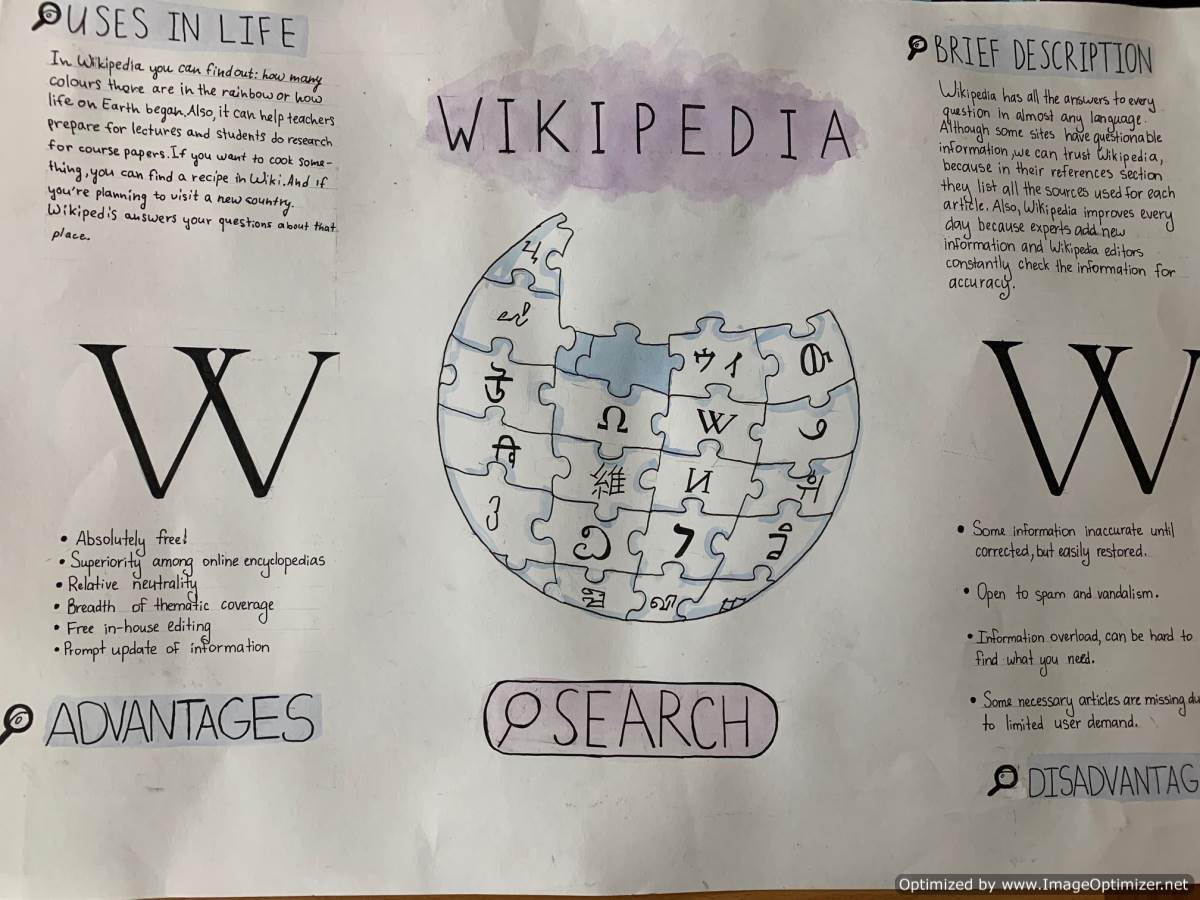 USES IN LIFE
In Wikipedia you can find out: how many
colours thore are in the rainbow or how
life on Earth began. Also, it can help teachers
prepare for lectures and students do research
for course papers. If you want to cook some-
thing, you can find a recipe in Wiki. And if
you're planning to visit a new country.
Wikipedis answers your questions about that
place.
W
• Absolutely free!
• Superiority among online encyclopedias
• Relative neutrality
• Breadth of thematic coverage
• Free in-house editing
• Prompt update of information
ADVANTAGES
WIKIPEDIA
ウィ
Ω
W
維
И
SEARCH
BRIEF DESCRIPTION
Wikipedia has all the answers to every
question in almost any language.
Although some sites have questionable
information, we can trust Wikipedia,
because in their references section
they list all the sources used for each
article. Also, Wikipedia improves every
day because experts add new
information and Wikipedia editors
constantly check the information for
accuracy.
W
• Some information inaccurate until
corrected, but easily restored.
• Open to spam and vandalism.
• Information overload, can be hard to
find what you need.
• Some necessary articles are missing du
to limited user demand.
DISADVANTAG
Optimized by www.ImageOptimizer.net